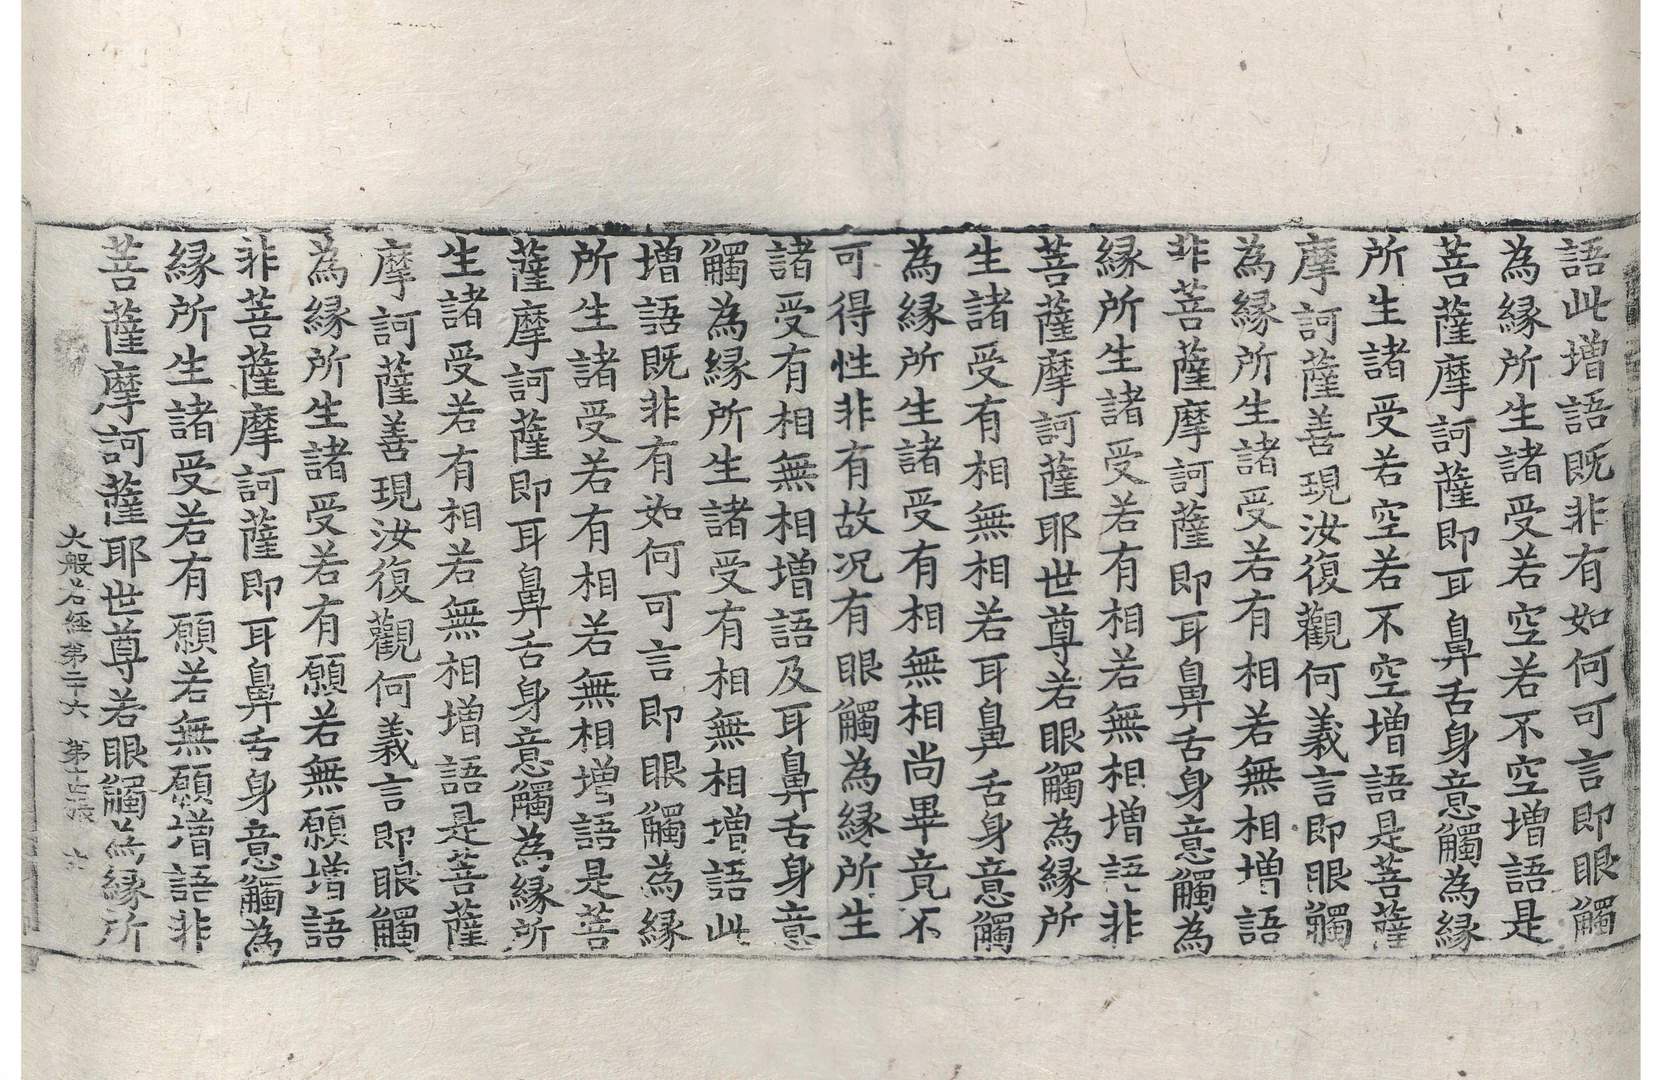 語此增語既非有如何可言即眼觸
為縁所生諸受若空若不空增語是
菩薩摩訶薩即耳鼻舌身意觸為縁
所生諸受若空若不空增語是菩薩
摩訶薩善現汝復觀何義言即眼觸
為縁所生諸受若有相若無相增語
非菩薩摩訶薩即耳鼻舌身意觸為
縁所生諸受若有相若無相增語非
菩薩摩訶薩耶世尊若眼觸為縁所
生諸受有相無相若耳鼻舌身意觸
為縁所生諸受有相無相尚畢竟不
可得性非有故况有眼觸為縁所生
諸受有相無相增語及耳鼻舌身意
觸為縁所生諸受有相無相增語此
增語既非有如何可言即眼觸為縁
所生諸受若有相若無相增語是菩
薩摩訶薩即耳鼻舌身意觸為縁所
生諸受若有相若無相增語是菩薩
摩訶薩善現汝復觀何義言即眼觸
為縁所生諸受若有願若無願增語
非菩薩摩訶薩即耳鼻舌身意觸為
縁所生諸受若有願若無願增語非
菩薩摩訶薩耶世尊若眼觸為縁所
大般若經第二十六 第 張